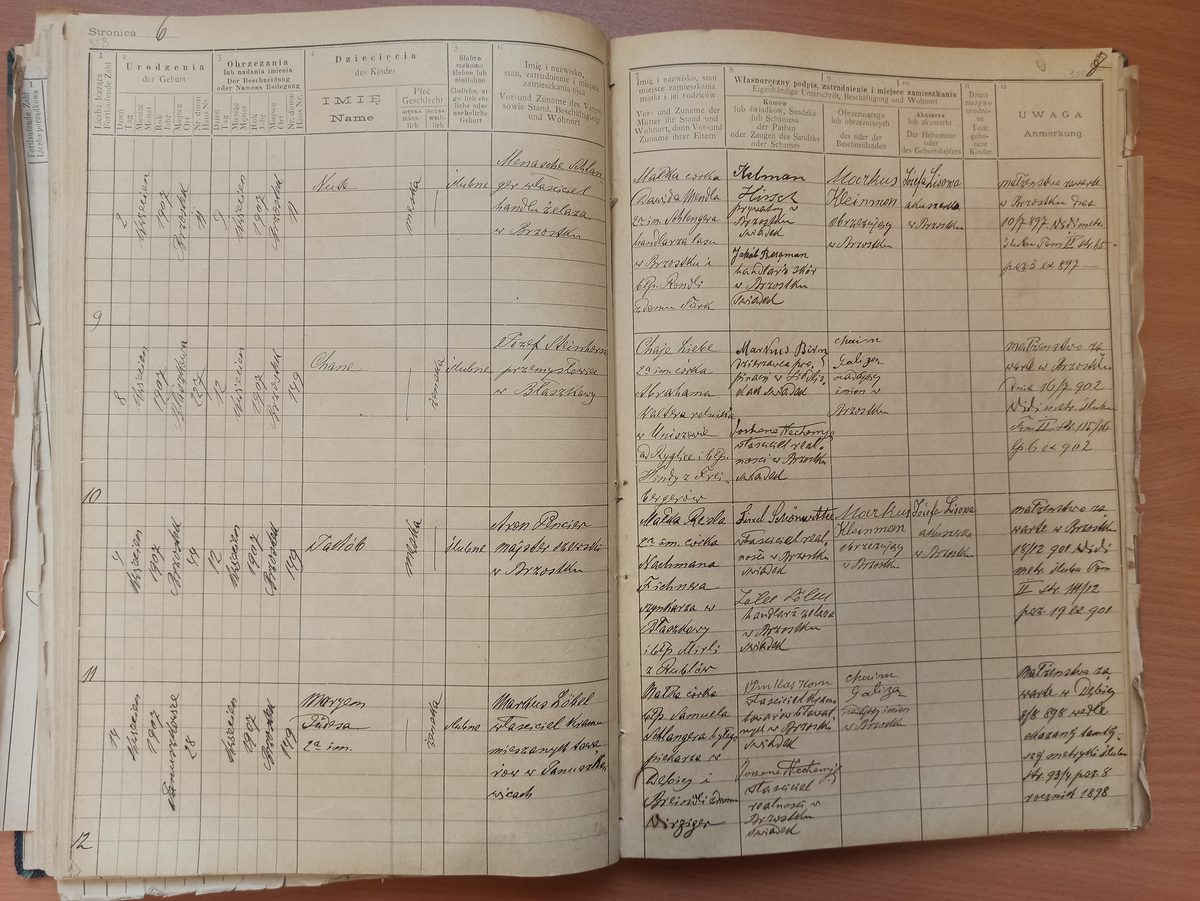 Stronica 6
358
Liczba bieżąca
Fortlaufende Zahl
Urodzenia
der Geburt
Dzień
Tag
Miesiąc
Monat
Rok
Jahr
Miejsce
Ort
Nr. domu
Haus Nr.
Obrzezania
lub nadania imienia
Der Beschneidung
oder Namens Beilegung
Dzień
Tag
Miesiąc
Monat
Rok
Jahr
Miejsce
Ort
Nr. domu
Haus Nr.
Dziecięcia
des Kindes
IMIĘ
Name
Płeć
Geschlecht
męska
männlich
żeńska
weiblich
Ślubne
rzekomo
ślubne lub
nieślubne
Eheliche, an-
geblich ehe-
liche oder
uneheliche
Geburt
Imię i nazwisko,
stan, zatrudnienie i miejsce
zamieszkania ojca
Vor- und Zuname des Vaters
sowie Stand, Beschäftigung
und Wohnort
9
2
Kwiecien
1907
Brzostek
11
9
Kwiecien
1907
Brzostek
11
Nuse
męska
ślubne
Menasche Schlan-
ger właściciel
handlu żelaza
w Brzostku
10
8
Kwiecien
1907
Błaszkowa
207
12
Kwiecien
1907
Brzostek
149
Chane
żeńska
ślubne
Józef Steinhorn
przemysłowiec
w Błaszkowy
11
5
Kwiecien
1907
Brzostek
54
12
Kwiecien
1907
Brzostek
149
Jakób
męska
ślubne
Aron Pencier
majster szewski
w Brzostku
12
11
Kwiecien
1907
Januszkowice
28
Kwiecien
1907
Brzostek
149
Maryem
Tudesa
2a im.
żeńska
ślubne
Markus Löbel
właściciel kramu
mieszanych towa
rów w Januszko
wicach
8
Imię i nazwisko, stan
zatrudnienie i miejsce zamieszkania
matki i jej rodziców
Vor- und Zuname der
Mutter ihr Stand und
Wohnort, dann Vor- und
Zuname ihrer Eltern
Własnoręczny podpis, zatrudnienie i miejsce zamieszkania
Eigenhändige Unterschrift, Beschäftigung und Wohnort
Kumów
lub świadków, Sandeka
lub Schamesa
der Pathen
oder Zeugen des Sandeks
oder Schames
Obrzezującego
lub obrzezujących
des oder der
Beschneidenden
Akuszera
lub akuszerki
Der Hebamme
oder
des Geburtshelfers
Dzieci
nieżywo
urodzo-
ne
Todt
gebo-
rene
Kinder
UWAGA
Anmerkung
Małka corka
Dawida Mendla
2a im. Schlangera
handlarza lasu
w Brzostku i
błp. Rendli
z domu Turk
Kelman
Hirsch
prywatny w
Brzostku
świadek
Jakób Bergman
handlarz skór
w Brzostku
świadek
Markus
Kleinmon
obrzezujący
w Brzostku
Józefa Lisowa
akuszerka
w Brzostku
małżenstwo zawarte
w Brzostku dnia
10/7 897 Widi metr.
ślubu Tom II str. 65
poz 3 ex 897
Chaje Liebe
2a im. corka
Abrahama
Waltera rolnika
w Uniszowie
ad Ryglice i błp.
Hindy z Frei-
bergerów
Markus Birn
dzierzawca pro-
pinacji w
świadek
Jochene Nechemje
właściciel real-
ności w Brzostku
świadek
chaim
Galizer
nadający
imion w
Brzostku
małżenstwo za
warte w Brzostku
dnia 16/7 902
Widi metr. ślubu
Tom II str. 115/116
lp. 6 ex 902
Małka Resla
2a im. corka
Nachmana
Fichnera
szynkarza w
Błaszkowy
i błp Mirli
z Rublów
Izrael Schönwetter
właściciel real
ności w Brzostku
świadek
handlarz zelaza
w Brzostku
świadek
Markus
Kleinmon
obrzezujący
w Brzostku
Józefa Lisowa
akuszerka
w Brzostku
małżenstwo za-
warte w Brzostku
18/12 901 Widi
metr. ślubu Tom
II str. 111/12
poz. 19 ex 901
Małka córka
błp Samuela
Schlangera byłego
piekarza w
Dębicy i
Breindli z domu
Wirziger
Pinkas Korn
właściciel kramu
towarów bławat
nych w Brzostku
świadek
Jochene Nechemje
właściciel
realności w
Brzostku
świadek
chaim
Galizer
nadający imion
w Brzostku
Małżenstwo za
warte w Dębicy
2/8 898 wedle
okazanej tamtej
szej metryki ślubu
str. 93/4 poz. 8
rocznik 1898